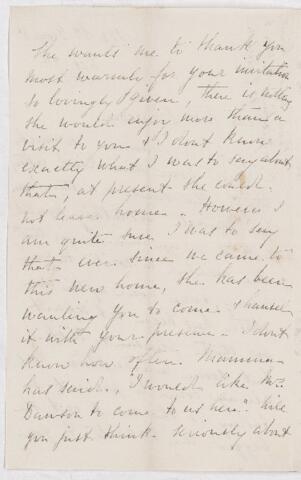 She wants me to thank you
most warmly for your invitation
so lovingly given, there is nothing
she would enjoy more than a
visit to you & I don't know
exactly what I was to say about
that, at present she could
not leave home. However I
am quite sure I was to say
that ever since we came to
this new home, she has been
wanting you to come &
it with your presence. I don't
know how often Mamma
has said, "I would like Mrs
Dawson to come to us here". Will
you just think seriously about